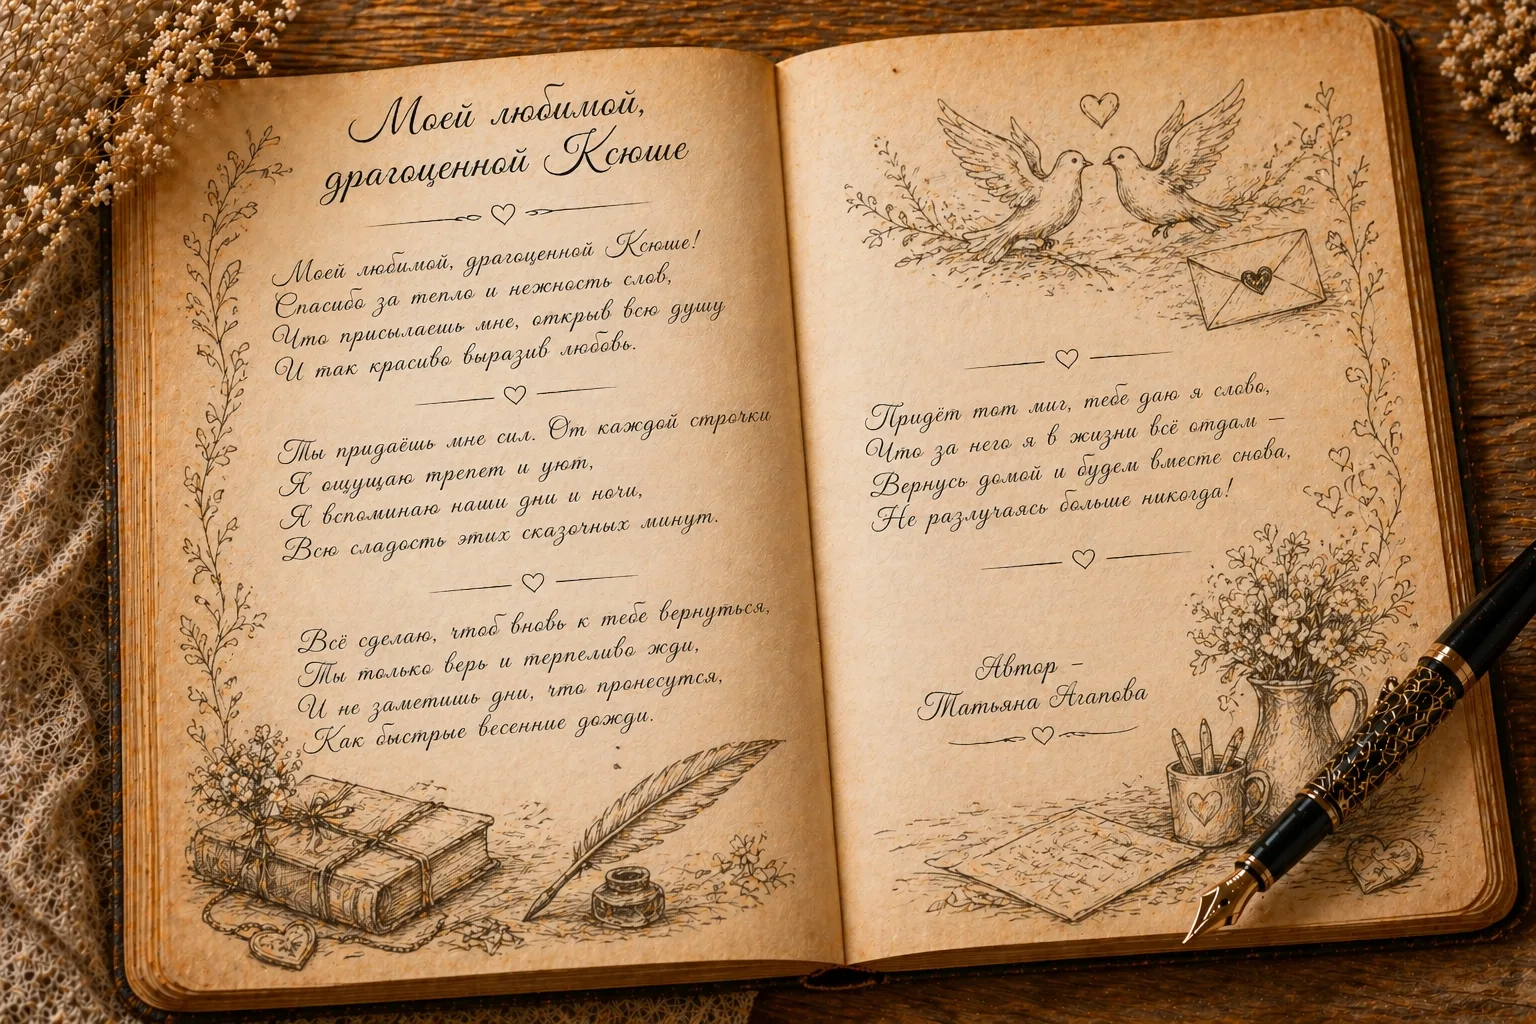 Моей любимой,
драгоценной Ксюше
Моей любимой, драгоценной Ксюше!
Спасибо за тепло и нежность слов,
Что присылаешь мне, открыв всю душу
И так красиво выразив любовь.
Ты придаёшь мне сил. От каждой строчки
Я ощущаю трепет и уют,
Я вспоминаю наши дни и ночи,
Всю сладость этих сказочных минут.
Всё сделаю, чтоб вновь к тебе вернуться,
Ты только верь и терпеливо жди,
И не заметишь дни, что пронесутся,
Как быстрые весенние дожди.
Придёт тот миг, тебе даю я слово,
Что за него я в жизни всё отдам –
Вернусь домой и будем вместе снова,
Не разлучаясь больше никогда!
Автор –
Татьяна Агапова